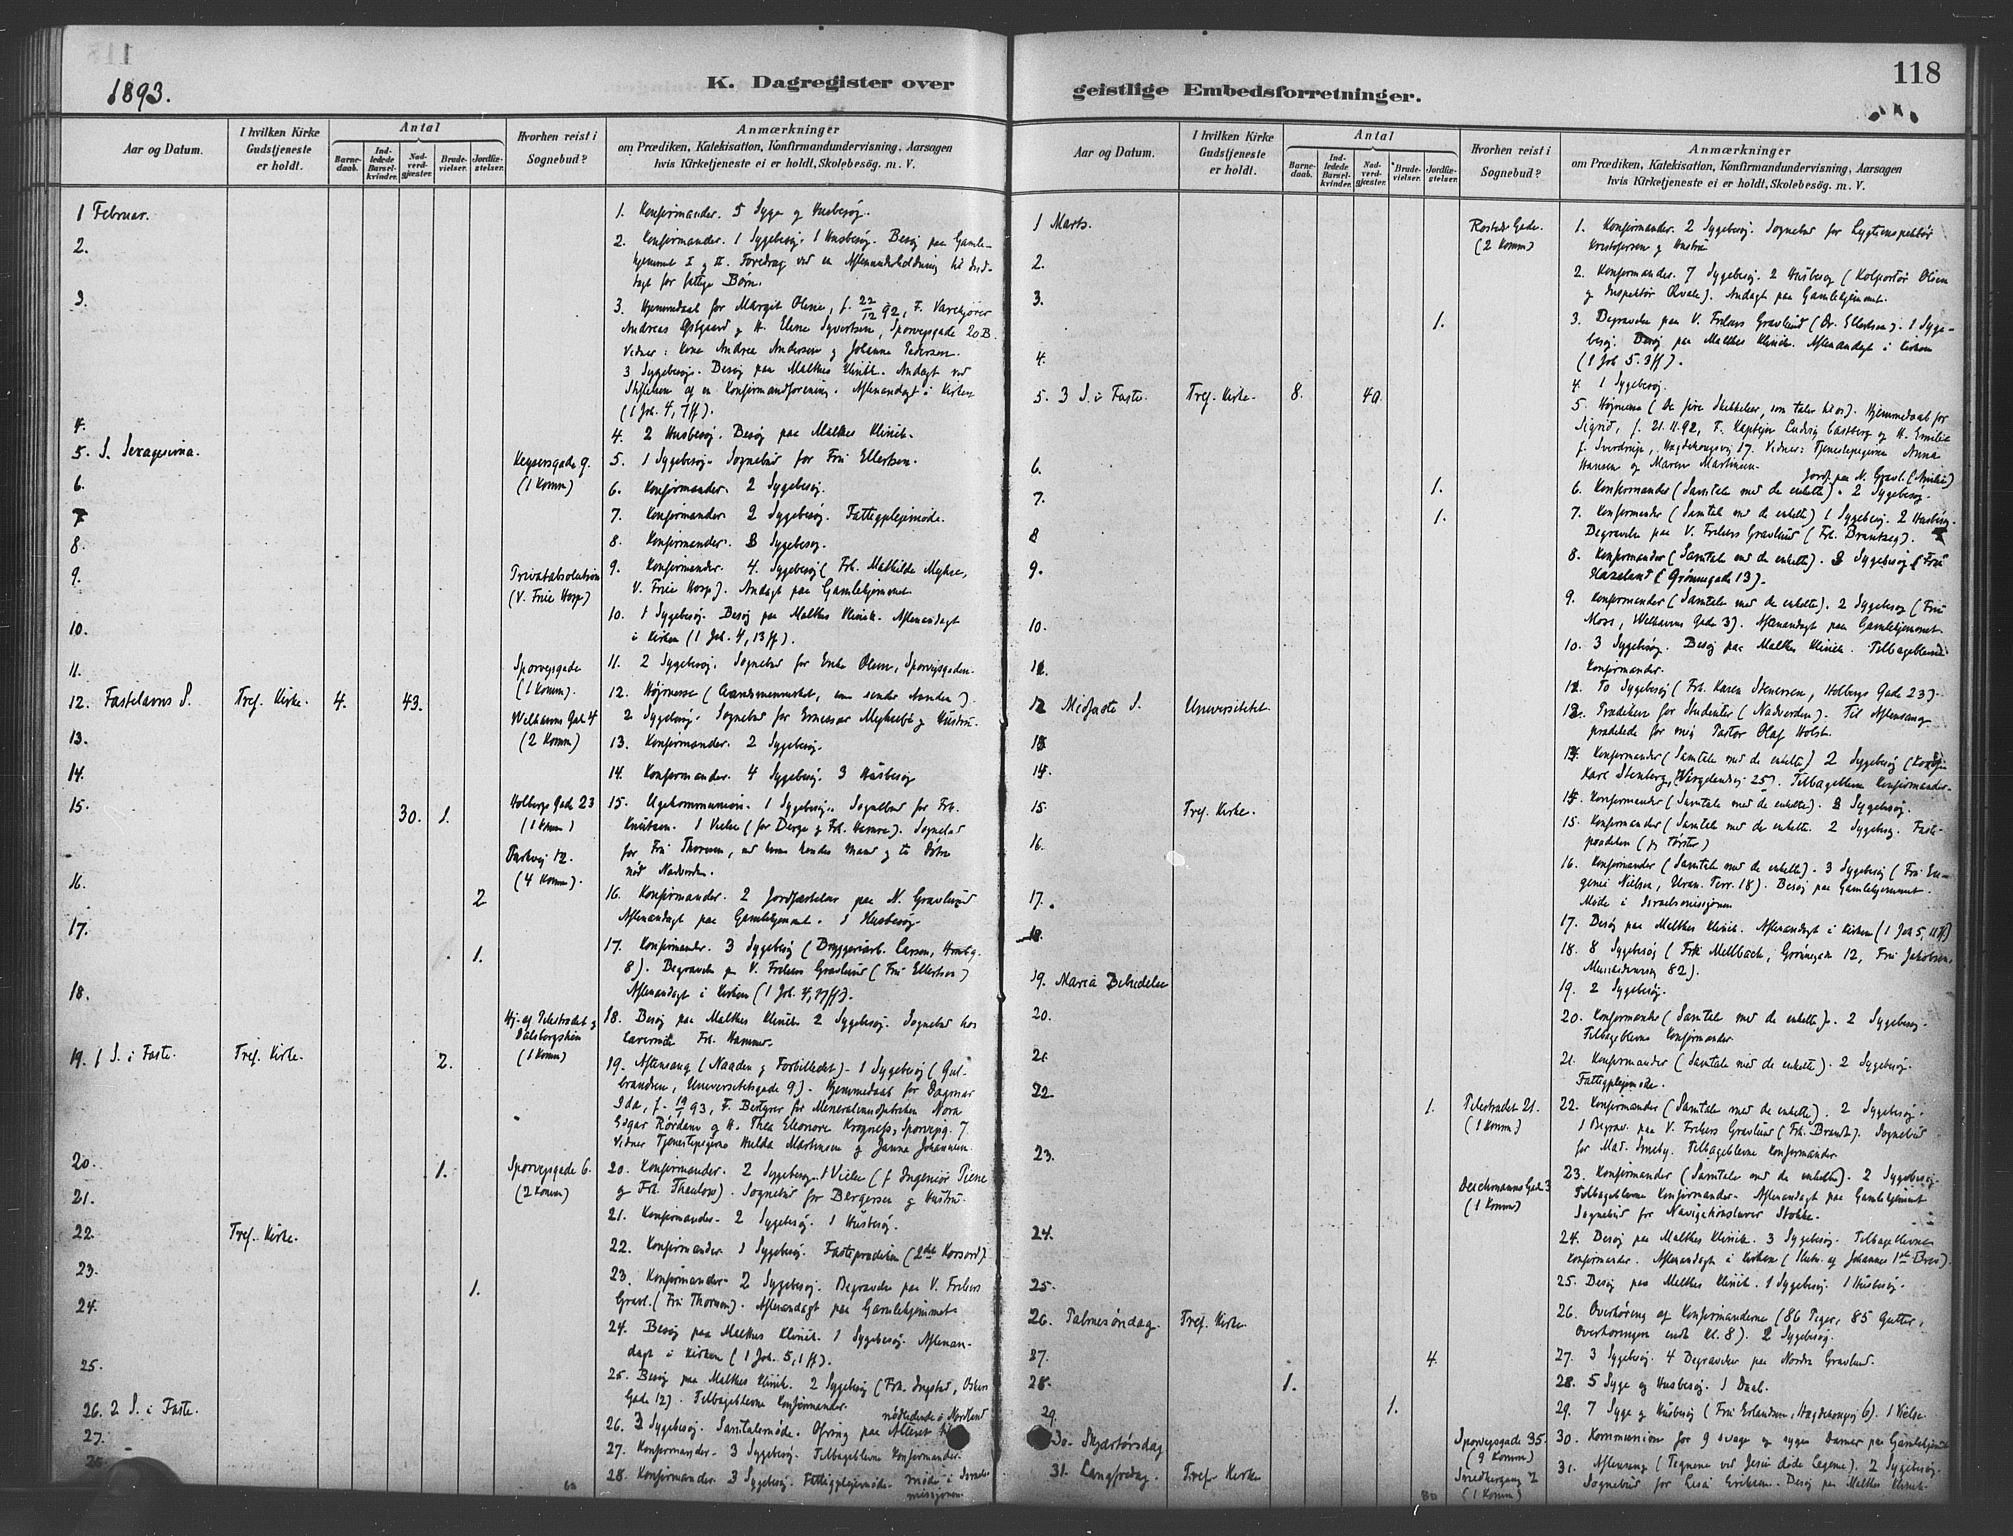 118
1893.
K. Dagregister over
geistlige Embedsforretninger.
Aar og Datum.
I hvilken Kirke
Gudstjeneste
er holdt.
Antal
Barne-
daab.
Ind-
ledede
Barsel-
kvinder.
Nad-
verd-
gjæster.
Brude-
vielser.
Jordfæ-
stelser.
Hvorhen reist i
Sognebud?
Anmærkninger
om Prædiken, Katekisation, Konfirmandundervisning, Aarsagen
hvis Kirketjeneste ei er holdt, Skolebesög. m. V.
1 Februar.
1. Konfirmander. 5 Syge og Husbesøg.
2.
2. Konfirmander. 1 Sygebesøg. 1 Husbesøg. Besøg paa Gamle-
hjemmet I og II. Foredrag ved en Aftenunderholdning til Ind-
tægt for fattige Børn.
3.
3. Hjemmedaab for Margit Oline, f. 22/12 92, F.
Andreas Østgaard og M. Elene Syvertsen, Sporveisgade 20 B.
Vidner: Kone Andrea Andersen og Johanne Pedersen.
3 Sygebesøg. Besøg paa Malthes Klinik. Andagt ved
Stiftelsen af en Konfirmandforening. Aftenandagt i Kirken
(1 Joh. 4, 7 ff).
4.
4. 2 Husbesøg. Besøg paa Malthes Klinik.
5. S. Sexagesima.
Keysersgade 9.
(1 Komm)
5. 1 Sygebesøg. Sognebud for Fru Ellertsen.
6.
6. Konfirmander. 2 Sygebesøg.
7
7. Konfirmander. 2 Sygebesøg. Fattigplejemøde.
8.
8. Konfirmander. 3 Sygebesøg.
9.
Privatabsolution
(V. Frue Hosp)
9. Konfirmander. 4 Sygebesøg (Frk. Mathilde Myhre,
V. Frue Hosp). Andagt paa Gamlehjemmet
10.
10. 1 Sygebesøg. Besøg paa Malthes Klinik. Aftenandagt
i Kirken (1 Joh. 4, 13 ff).
11.
Sporvejsgade
(1 Komm).
11. 2 Sygebesøg. Sognebud for Enke Olsen, Sporvejsgaden.
12. Fastelavns S.
Tref. Kirke.
4.
43.
Welhavns Gad. 4
(2 Komm)
12. Højmesse
2 Sygebesøg. Sognebud for
13.
13. Konfirmander. 2 Sygebesøg.
14.
14. Konfirmander. 4 Sygebesøg. 3 Husbesøg
15.
30.
1.
Holbergs Gade 23
(1 Komm)
Parkvej 12.
(4 Komm).
15. Ugekommunion. 1 Sygebesøg. Sognebud for Frk.
Knutsen. 1 Vielse
for Fru Thoresen, ved hvem hendes Mand og to Døtre
nød Nadverden.
16.
2
16. Konfirmander. 2 Jordfæstelser paa N. Gravlund
Aftenandagt paa Gamlehjemmet. 1 Husbesøg
17.
1.
17. Konfirmander. 3 Sygebesøg
8). Begravelse paa V. Frelsers Gravlund (Fru Ellertsen)
Aftenandagt i Kirken
18.
18. Besøg paa Malthes Klinik. 2 Sygebesøg. Sognebud hos
Frk. Hammer.
19. 1 S. i Faste.
Tref. Kirke.
2.
(1 Komm)
19. Aftensang (Naaden og Forbilledet). 1 Sygebesøg (Gul-
brandsen, Universitetsgade 9). Hjemmedaab for Dagmar
Ida, f. 19/1 93, F. Bestyrer for Mineralvandfabriken Nora
Edgar Rørdam og M. Thea Eleonore Krogness, Sporvejsg. 7
Vidner Tjenestepigerne Hulda Martinsen og Janna Johannesen
20.
1.
Sporvejsgade 6.
(2 Komm)
20. Konfirmander. 2 Sygebesøg. 1 Vielse (f Ingeniør Piene
og Frk. Thaulow). Sognebud for Bergersen og Hustru.
21.
21. Konfirmander. 2 Sygebesøg. 1 Husbesøg.
22.
Tref. Kirke.
22. Konfirmander. 1 Sygebesøg. Fasteprædiken (2det Korsord)
23.
1.
23. Konfirmander. 2 Sygebesøg. Begravelse paa V. Frelsers
Gravl. (Fru Thoresen). Aftenandagt paa Gamlehjemmet
24.
24. Besøg paa Malthes Klinik. 1 Sygebesøg. Aftenan-
dagt i Kirken (1 Joh. 5, 1 ff).
25.
25. Besøg paa Malthes Klinik. 2 Sygebesøg (Frk. Ingstad, Oskars
Gade 12). Tilbageblevne Konfirmander.
26. 2 S. i Faste.
26. 3 Sygebesøg. Samtalemøde. Ofring paa Alteret til
nødlidende i Nordland
27.
27. Konfirmander. 3 Sygebesøg. Tilbageblevne Konfirmander.
28.
28. Konfirmander. 3 Sygebesøg. Fattigplejemøde. Møde i Israels-
missjonen.
Aar og Datum.
I hvilken Kirke
Gudstjeneste
er holdt.
Antal
Barne-
daab.
Ind-
ledede
Barsel-
kvinder.
Nad-
verd-
gjæster.
Brude-
vielser.
Jordfæ-
stelser.
Hvorhen reist i
Sognebud?
Anmærkninger
om Prædiken, Katekisation, Konfirmandundervisning, Aarsagen
hvis Kirketjeneste ei er holdt, Skolebesög. m. V.
1 Marts.
Rosteds Gade.
(2 Komm)
1. Konfirmander. 2 Sygebesøg. Sognebud for Lygteinspektør
Kristofersen og Hustru
2.
2. Konfirmander. 7 Sygebesøg. 2 Husbesøg (Kolportør Olsen
og Inspektør Qvale). Andagt paa Gamlehjemmet.
3.
1.
3. Begravelse paa V. Frelsers Gravlund (Dr. Ellertsen). 1 Syge-
besøg. Besøg paa Malthes Klinik. Aftenandagt i Kirken
(1 Joh 5. 3 ff).
4.
4. 1 Sygebesøg.
5. 3 S. i Faste.
Tref. Kirke.
8.
40.
5. Højmesse (De fire Skikkelser, som taler til os). Hjemmedaab for
Sigrid, f. 21.11.92, F. Kaptejn Ludvig Castberg og M. Emilie
f. Sverdrup, Hægdehougsvej 17. Vidner: Tjenestepigerne Anna
Hansen og Maren Martinsen.
Jordf. paa N. Gravl.
6.
1.
6. Konfirmander (Samtale med de enkelte). 2 Sygebesøg.
7.
1.
7. Konfirmander (Samtal med de enkelte) 1 Sygebesøg. 2 Husbesøg.
Begravelse paa V. Frelsers Gravlund
8
8. Konfirmander (Samtale med de enkelte). 3 Sygebesøg (Fru
Hazeland (Grønnegade 13).
9.
9. Konfirmander (Samtale med de enkelte). 2 Sygebesøg (Fru
Moss, Welhavns Gade 3). Aftenandagt paa Gamlehjemmet.
10.
10. 3 Sygebesøg. Besøg paa Malthes Klinik. Tilbageblevne
Konfirmander.
11.
11. To Sygebesøg (Frk. Karen Stenersen, Holbergs Gade 23).
12 Midfaste S.
Universitetet.
12. Prædiken for Studenter (Nadverden). Til Aftensang
prædikede for mig Pastor Olaf Holst.
13.
13. Konfirmander (Samtale med de enkelte) 2 Sygebesøg
Karl Stenberg, Wergelandsvej 25). Tilbageblevne Konfirmander.
14.
14. Konfirmander (Samtale med de enkelte). 3 Sygebesøg.
15.
Tref. Kirke.
15. Konfirmander (Samtale med de enkelte. 2 Sygebesøg. Faste-
prædiken (Jeg tørster)
16.
16. Konfirmander (Samtale med de enkelte). 3 Sygebesøg (Fru Eu-
genie Nielsen, Uran. Terr. 18). Besøg paa Gamlehjemmet.
Møde i Israelsmissjonen
17.
17. Besøg paa Malthes Klinik. Aftenandagt i Kirken (1 Joh 5, 11 ff)
18.
18. 8 Sygebesøg (Frk Mellbach, Grønnegade 12, Fru Jakobsen,
82).
19. Maria Bebudelse
19. 2 Sygebesøg.
20.
20. Konfirmander (Samtale med de enkelte). 2 Sygebesøg.
Tilbageblevne Konfirmander
21.
21. Konfirmander (Samtale med de enkelte). 2 Sygebesøg.
Fattigplejemøde.
22
1.
Pilestrædet 21.
(1 Komm)
22. Konfirmander (Samtale med de enkelte). 2 Sygebesøg.
1 Begrav. paa V. Frelsers Gravlund (Frk. Brandt). Sognebud
for Mad. Smeby. Tilbageblevne Konfirmander
23.
Deichmanns Gad. 3
(1 Komm)
23. Konfirmander (Samtale med de enkelte). 2 Sygebesøg.
Tilbageblevne Konfirmander. Aftenandagt paa Gamlehjemmet
Sognebud for Navigationslærer Stokke.
24.
24. Besøg paa Malthes Klinik. 3 Sygebesøg. Tilbageblevne
Konfirmander. Aftenandagt i Kirken (Slutn. af Johannes 1ste Brev).
25.
25. Besøg paa Malthes Klinik. 1 Sygebesøg. 1 Husbesøg.
26. Palmesøndag.
Tref. Kirke
26. Overhøring af Konfirmanderne (86 Piger, 85 Gutter,
Overhøringen endt Kl. 8). 2 Sygebesøg.
27.
4.
27. 3 Sygebesøg. 4 Begravelser paa Nordre Gravlund.
28.
1.
28. 5 Syge og Husbesøg. 1 Daab.
29.
1.
29. 7 Syge og Husbesøg (Fru Erlandsen, Hægdehougsvej 6). 1 Vielse
30. Skjærtorsdag
Sporvejsgade 35.
(9 Komm)
30. Kommunion for 9 svage og syge Damer paa Gamlehjemmet
31. Langfredag.
Tref. Kirke
Smedhergang 7
(1 Komm)
31. Aftensang (Tegnene ved Jesu døde Legeme). 2 Sygebesøg.
Sognebud for Lesa Eriksen. Besøg paa Malthes Klinik.